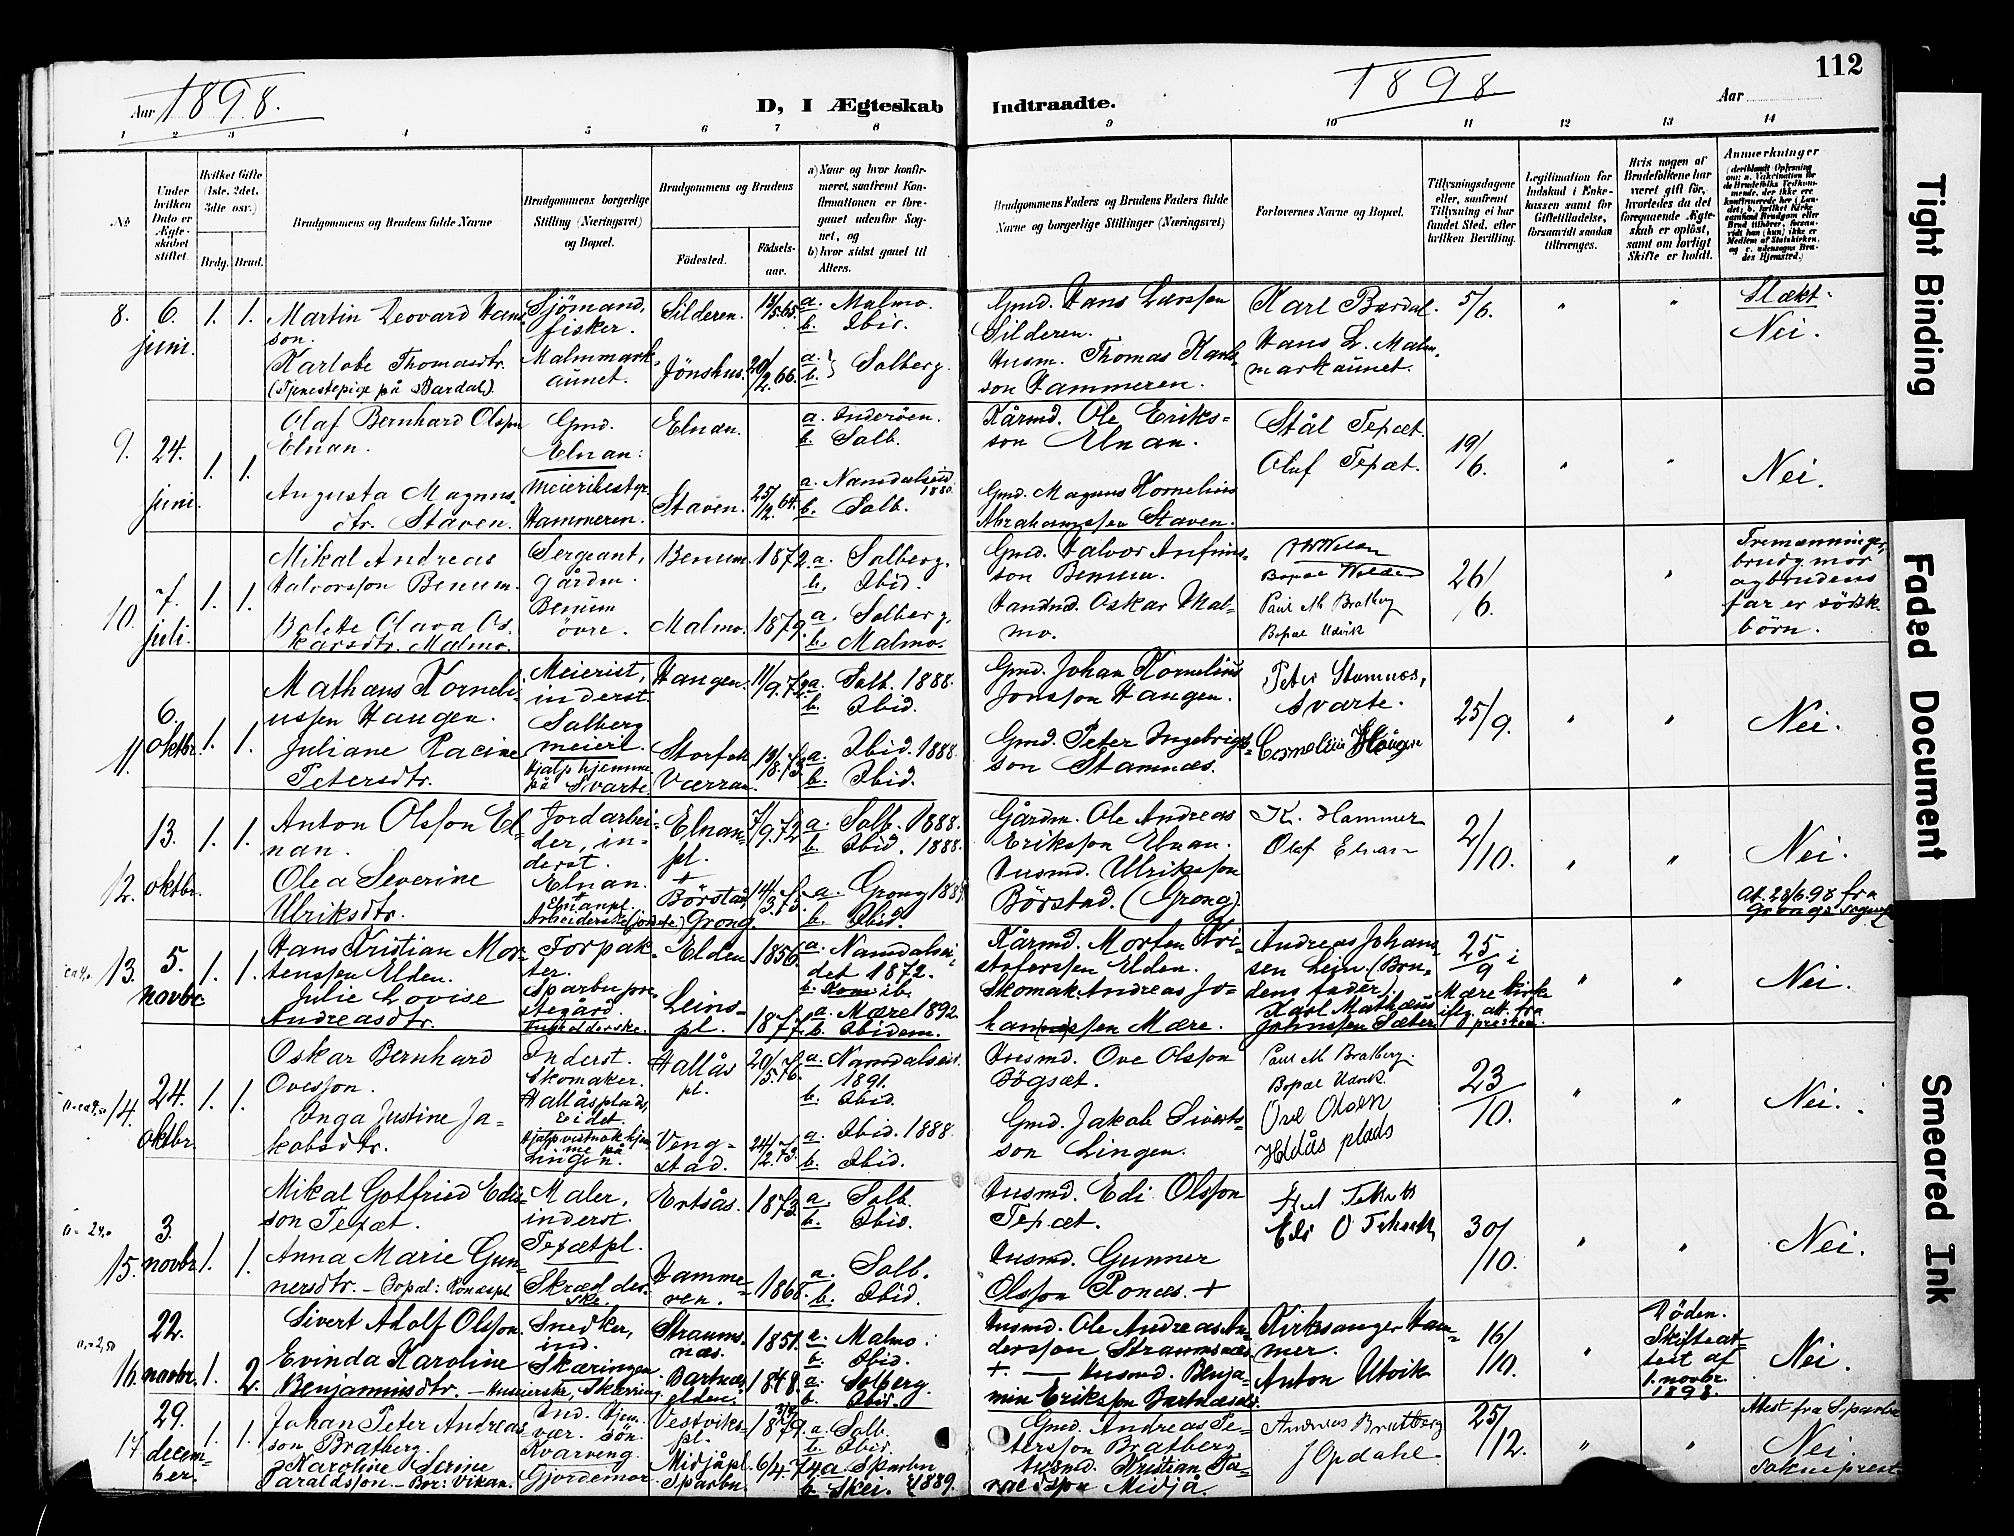 112
Aar 1898.
D, I Ægteskab Indtraadte.
1898
Aar
1 2 3 4 5 6 7 8 9 10 11 12 13 14
No
Under hvilken Dato er Ægteskabet stiftet.
Hvilket Gifte (1ste, 2det, 3die osv.)
Brdg. Brud.
Brudgommens og Brudens fulde Navne
Brudgommens borgerlige Stilling (Næringsvei) og Bopæl.
Brudgommens og Brudens
Fødested.
Fødselsaar.
a) Naar og hvor konfirmeret, saafremt Konfirmationen er foregaaet udenfor Sognet, og
b) hvor sidst gaaet til Alters.
Brudgommens Faders og Brudens Faders fulde Navne og borgerlige Stillinger (Næringsvei)
Forlovernes Navne og Bopæl.
Tillysningsdagene eller, saafremt Tillysning ei har fundet Sted, efter hvilken Bevilling.
Legitimation for Indskud i Enkekassen samt for Giftetilladelse, forsaavidt saadan tiltrænges.
Hvis nogen af Brudefolkene har været gift før, hvorledes da det foregaaende Ægteskab er opløst, samt om lovligt Skifte er holdt.
Anmerkninger
8. 6. juni. 1. 1.
Martin Leovard Hansson.
Karlobe Thomasdtr.
(Tjenestepige på Bardal)
Sjömand, fisker.
Malmmarkaunet.
Silderen. 13/5 65.
Jönshus. 20/2 66.
a. Malmo.
b. Ibid.
a. b. } Solberg.
Gmd. Hans Larsson Silderen.
Husm. Thomas Karlsson Hammeren.
Karl Bardal.
Hans L. Malmmarkaunet.
5/6.
" "
Slækt.
Nei.
9. 24. juni. 1. 1.
Olaf Bernhard Olsson Elnan.
Augusta Magnusdtr. Staven.
Gmd. Elnan:
Hammeren.
Elnan.
Staven. 25/12 64.
a. Inderöen.
b. Solb.
a. Namdalseid 1880.
b. Solb.
Kårmd. Ole Eriksson Elnan.
Gmd. Magnus Kornelius Abrahamssen Staven.
Stål Tepæt.
Oluf Tepæt.
19/6.
" "
Nei.
10. 7. juli. 1. 1.
Mikal Andreas Halvorsson Benum.
Bolette Olava Oskarsdtr. Malmo.
Sergeant, gårdm. Benum övre.
Benum. 1872.
Malmo. 1879.
a. Solberg.
b. Ibid.
a. Solberg.
b. Malmo.
Gmd. Halvor Anfinsson Benum.
Handmd. Oskar Malmo.
Paul M Bratberg
Bopæl Udvik
26/6.
"
Tremenninger, brudg. mor og brudens far er södsk. börn.
11. 6. oktbr. 1. 1.
Mathæus Korneliussen Haugen.
Juliane Racine Petersdtr.
Meierist, inderst. Solberg meieri.
Hjælp hjemme på Svarte.
Haugen. 11/9. 72
Storfoss Værran. 18/8. 73.
a. Solb. 1888.
b. Ibid.
a. Ibid. 1888.
b. Ibid.
Gmd. Johan Kornelius Jonsson Haugen.
Gmd. Peter Ingebrigtsson Stamnes.
Peter Stamnes, Svarte.
Cornelius Haugen
25/9.
" "
Nei.
12. 13. oktbr. 1. 1.
Anton Olsson Elnan.
Olea Severine Ulriksdtr.
Jordarbeider, inderst. Elnan.
Elnanpl.
Elnan pl. 7/9. 72
Börstad, Grong. 14/3. 73.
a. Solb. 1888.
b. Ibid. 1888.
a. Grong 1889.
b. Ibid.
Gårdm. Ole Andreas Eriksson Elnan.
Husmd. Ulriksson Börstad. (Grong)
K. Hammer
Olaf Elnan
2/10.
" "
Nei.
At. 28/6.98 fra Grongs sogne
13. 5. novbr. 1. 1.
Hans Kristian Mortenssen Elden.
Julie Lovise Andreasdtr.
Forpakter. Sparbu prestegård.
Husholderske.
Elden 1856.
Leinspl. 1877.
a. Namdalseidet 1872.
b. ib.
a. Mære 1892.
b. Ibidem.
Kårmd. Morten Kristoferssen Elden.
Skomak. Andreas Johannessen Mære.
Andreas Johansen Lein. (Brudens fader).
Karl Mathæus Johnssen Sæter
25/9 i Mære kirke iflg. att. fra presten.
" "
Nei.
14. 24. oktbr. 1. 1.
Oskar Bernhard Ovesson.
Inga Justine Jakobsdtr.
Inderst. Skomaker. Hallåsplads, Eidet.
Hallås pl. 20/5. 76.
Vengstad. 24/2. 73.
a. Namdalseid. 1891.
b. Ibid.
a. Ibid. 1888.
b. Ibid.
Husmd. Ove Olsson Bögsæt.
Gmd. Jakob Sivertsson Lingen.
Paul M Bratberg.
Bopæl Udvik
Ove Olsen
Hldås plads
23/10.
" "
Nei.
15. 3. novbr. 1. 1.
Mikal Gotfried Edisson Tepæt.
Anna Marie Gunnersdtr. — Bopæl: Ronæspl
Maler, inderst. Tepætpl.
Skrædderske.
Ertsås. 1873.
Hammeren. 1868.
a. Solb.
b. Ibid.
a. Solb.
b. Ibid.
Husmd. Edi Olsson Tepæt.
Husmd. Gunner Olsson Ronæs. +
Edi O
30/10.
" "
Nei.
16. 22. novbr. 1. 2.
Sivert Adolf Olsson.
Evinda Karoline Benjaminsdtr. —
Snedker, ind. Skæringen
Straumsnæs. 1851.
Bartnæs 1848.
a. Malmo.
b. Ibid.
a. Solberg.
b. Ibid.
Husmd. Ole Andreas Anderssøn Straumsnæs. + — Husmd. Benjamin Eriksson Bartnæs
Kirksanger Hammer.
Anton Utvik
16/10.
"
Döden. Skifteattest af 1. novbr. 1898.
Nei.
17. 29. december. 1. 1.
Johan Peter Andreasson Bratberg.
Karoline Serine Taraldsson. — Bor: Vikan.
Ind. Kvarveng.
Gjordemor
Vestvikspl. 1879.
Midjåpl. Sparbu. 6/4. 74
a. Solb.
b. Ibid.
a. Sparbu
b. Skei. 1889.
Gmd. Andreas Petersson Bratberg.
Husmd. Kristian Taraldsson Midjå.
Andreas Bratberg
J Opdahl
25/12.
" "
Attest fra Sparbu
Nei.
Sogneprest.
Tight Binding
Faded Document
Smeared Ink